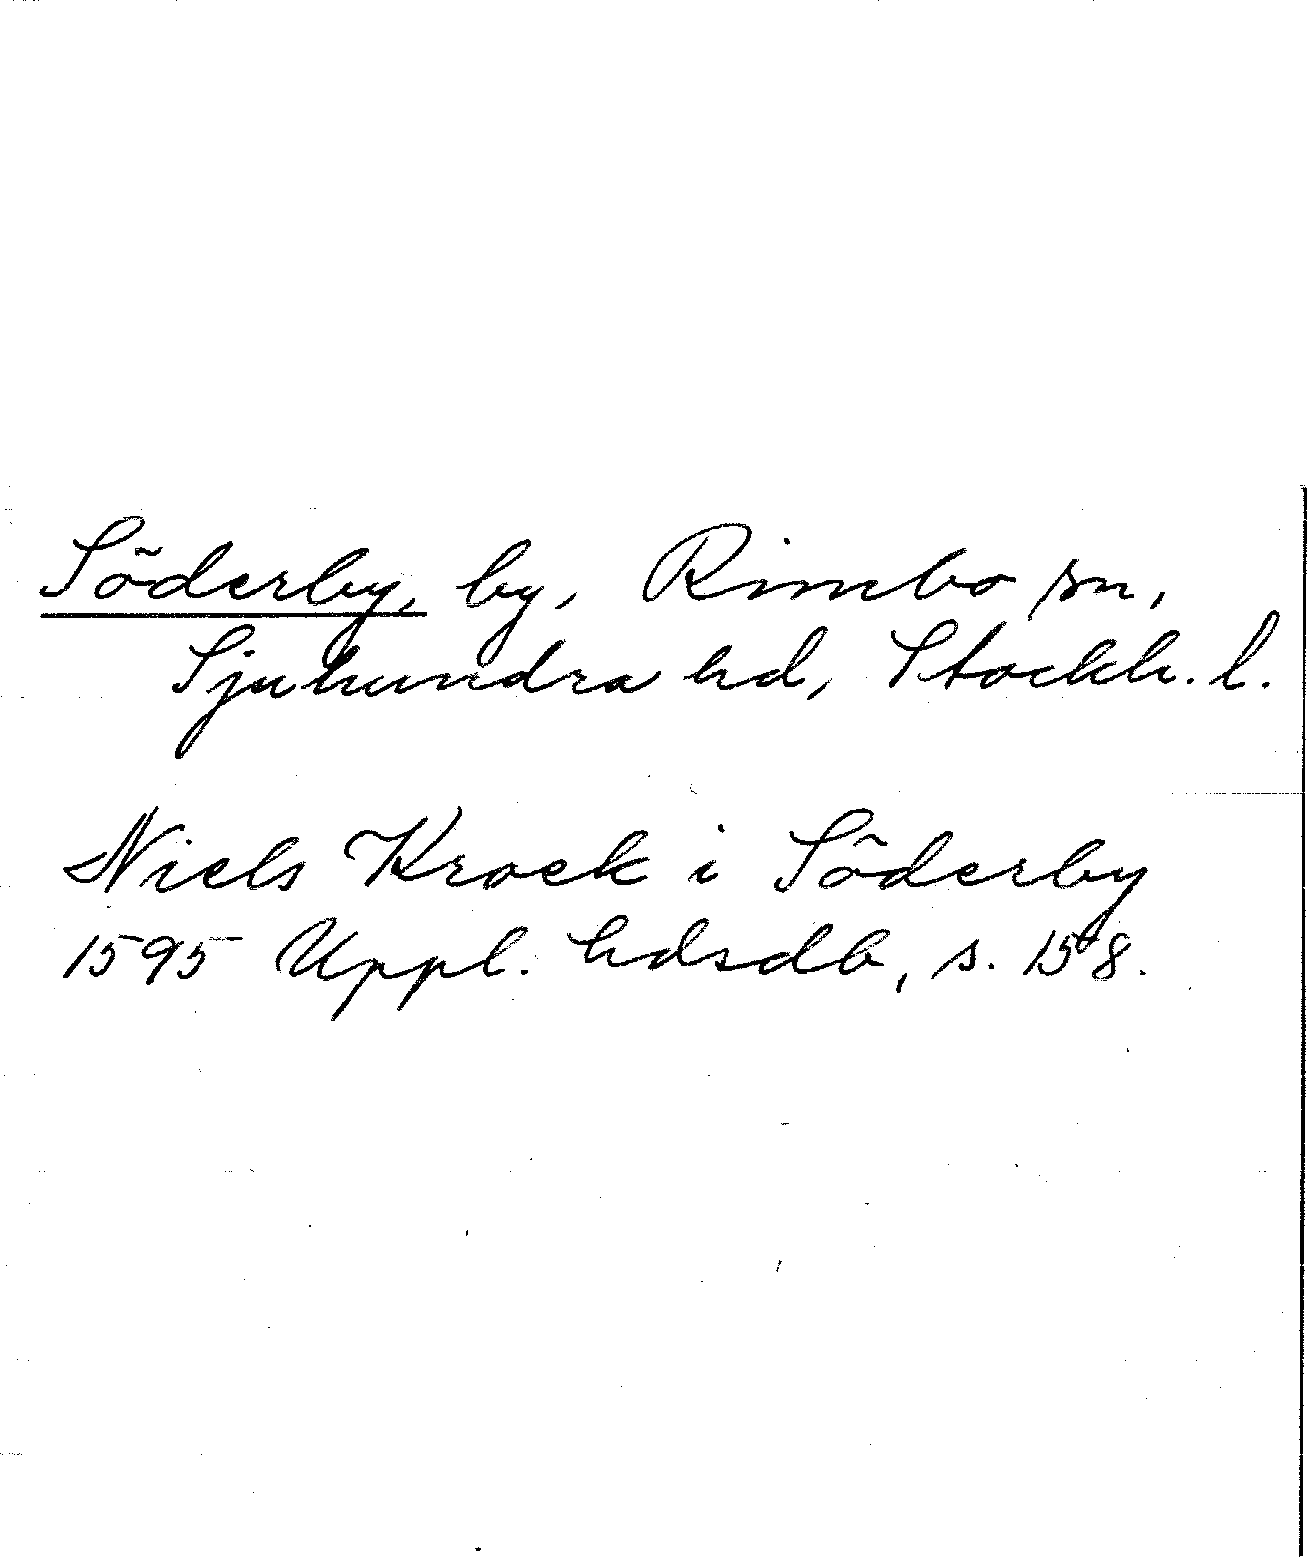 Söderby, by, Rimbo sn,
Sjuhundra hd, Stockh. l.
Niels Krock i Söderby
1595 Uppl. hdsdb, s. 158.